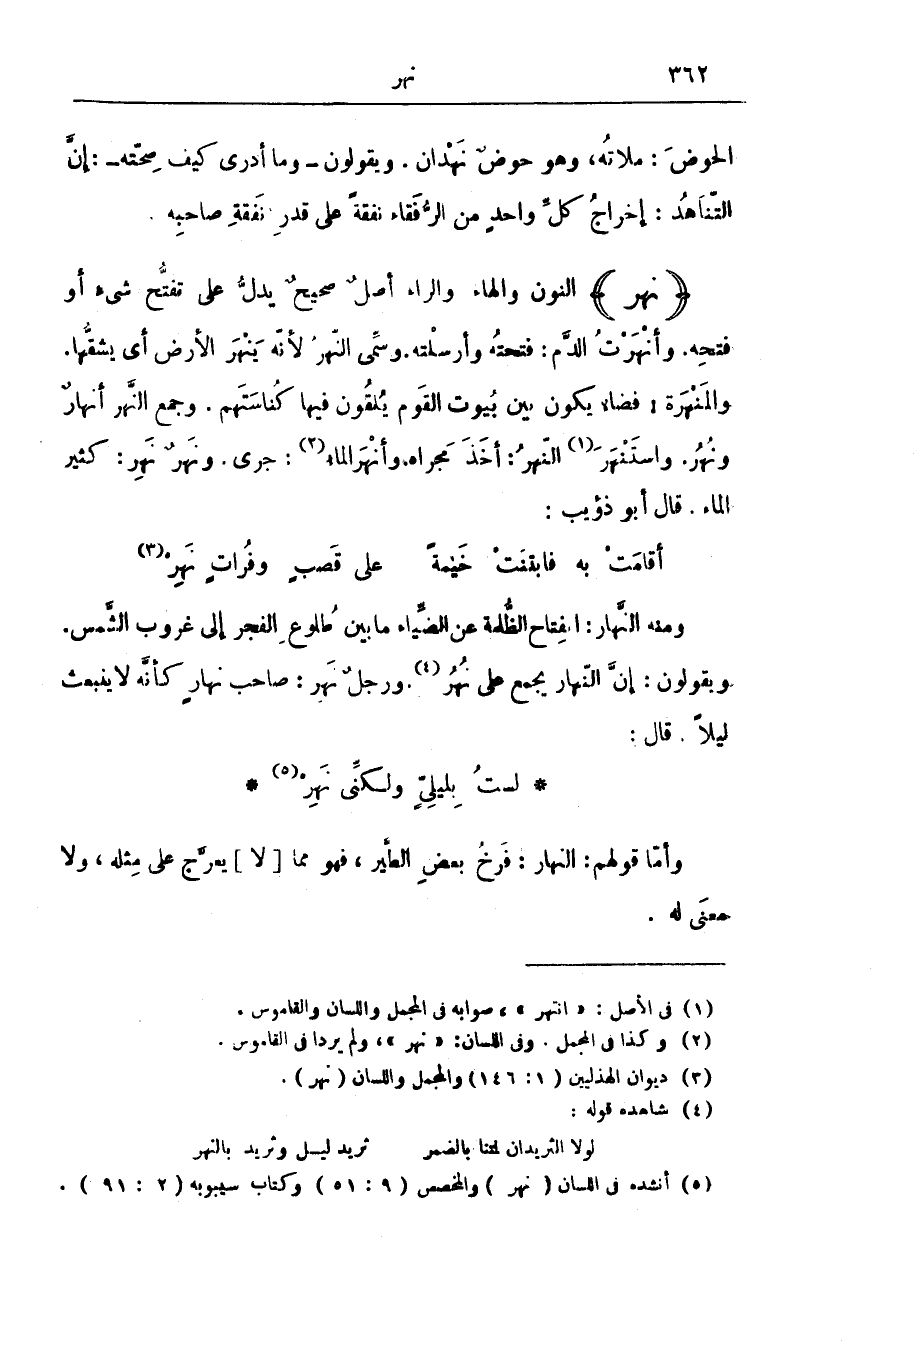 ٣٦٢ نهر
الحوضَ : ملأتُه، وهو حوضٌ نَهْدان . ويقولون – وما أدرى كيف صِحّته – : إنَّ
التَّناهُد : إخراجُ كلِّ واحدٍ من الرُّفَقاء نفقةً على قدرِ نَفقةِ صاحبِه .
﴿ نهر ﴾ النون والهاء والراء أصلٌ صحيحٌ يدلُّ على تفتُّح شىء أو
فتحِه. وأنْهَرْتُ الدَّم : فتحتُه وأرسلْته. وسُمِّى النّهرُ لأنّه يَنْهَر الأرض أى يشقُّها.
والمَنْهَرة : فضاء يكون بين بُيوت القَوم يُلقُون فيها كُناسَتَهم . وجمع النَّهر أنهارٌ
ونُهُر. واستَنْهَرَ(١) النّهرُ : أخَذَ مَجراه. وأنْهَرَ الماء(٢) : جرى. ونَهرٌ نَهِر : كثير
الماء . قال أبو ذؤيب :
أقامَتْ به فابقنَتْ خَيْمةً على قَصبٍ وفُراتٍ نَهِرْ(٣)
ومنه النَّهار : انفِتاح الظُّلمة عن الضِّياء ما بين طُلوع الفجر إلى غروب الشَّمس.
ويقولون : إنَّ النّهار يجمع على نُهُر(٤). ورجلٌ نَهِر : صاحب نهارٍ كأنَّه لا ينبعث
ليلاً . قال :
* لستُ بِليلِىٍّ ولكنِّى نَهِرْ(٥) *
وأمّا قولهم : النهار : فَرخُ بعضِ الطَّير ، فهو مما [ لا ] يعرَّج على مِثله ، ولا
معنَى له .
(١) فى الأصل : « انتهر » ، صوابه فى المجمل واللسان والقاموس .
(٢) وكذا فى المجمل . وفى اللسان: « نهر »، ولم يردا فى القاموس .
(٣) ديوان الهذليين ( ١ : ١٤٦ ) والمجمل واللسان ( نهر ) .
(٤) شاهده قوله :
لولا الثريدان لمتنا بالضمر ثريد ليـل وثريد بالنهر
(٥) أنشده فى اللسان ( نهر ) والمخصص ( ٩ : ٥١ ) وكتاب سيبويه ( ٢ : ٩١ ) .